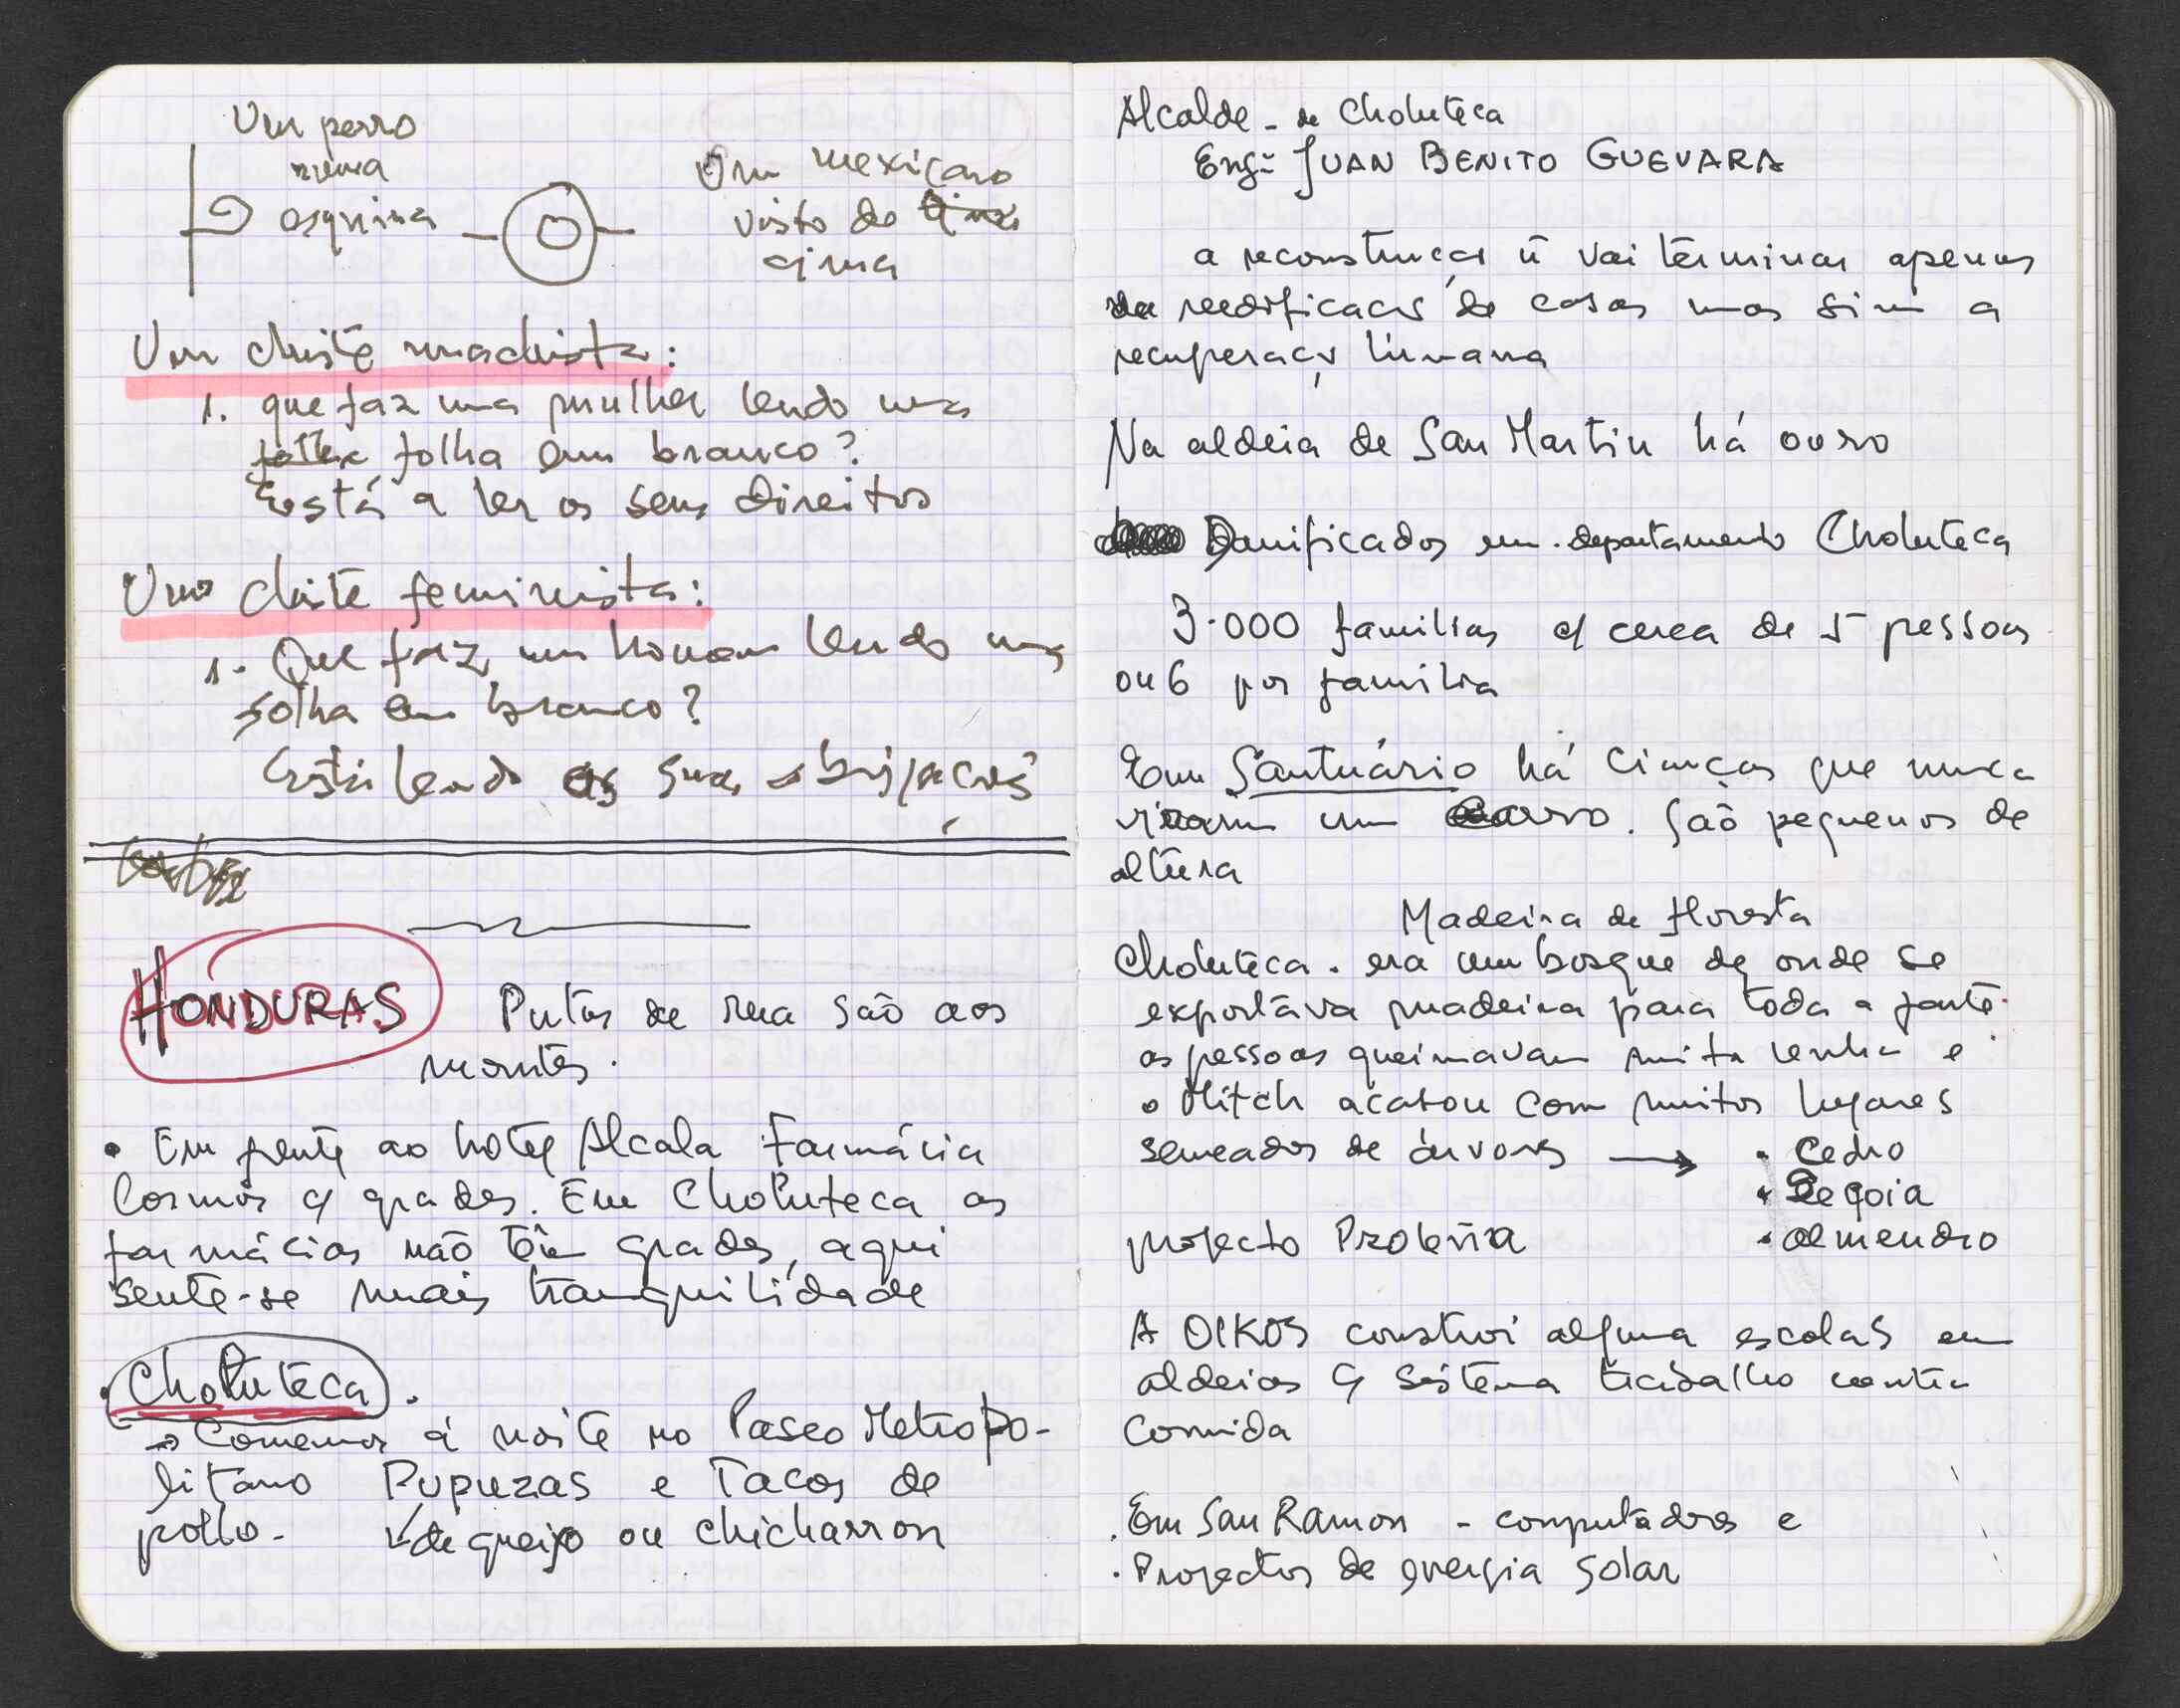 Um perro
numa
esquina
Um mexicano
visto de
cima
Um chiste machista:
1. que faz uma mulher lendo uma
folha em branco?
Está a ler os seus direitos
Um chiste feminista:
1. Que faz um homem lendo uma
folha em branco?
Está lendo as suas obrigações
HONDURAS
Putas de rua são aos
montes.
• Em frente ao hotel Alcala Farmácia
Cosmos c/ grades. Em Choluteca as
farmácias não têm grades, aqui
sente-se mais tranquilidade
• Choluteca.
→ Comemos à noite no Paseo Metropo-
litano Pupuzas e Tacos de
pollo.
de queijo ou chicharron
Alcalde - de Choluteca
Engº JUAN BENITO GUEVARA
a reconstrução ñ vai terminar apenas
na reedificação de casas mas sim a
recuperação humana
Na aldeia de San Martin há ouro
Danificados em departamento Choluteca
3.000 familias c/ cerca de 5 pessoas
ou 6 por familia
Em Santuário há crianças que nunca
viram um carro. São pequenos de
altura
Madeira de floresta
Choluteca. era um bosque de onde se
exportava madeira para toda a parte.
as pessoas queimavam muita lenha e
o Mitch acabou com muitos lugares
semeados de árvores → • Cedro
• Seqoia
projecto Proleña • almendro
A OIKOS construi alguma escolas em
aldeias c/ sistema trabalho contra
comida
. Em San Ramon - computadores e
. Projectos de energia solar